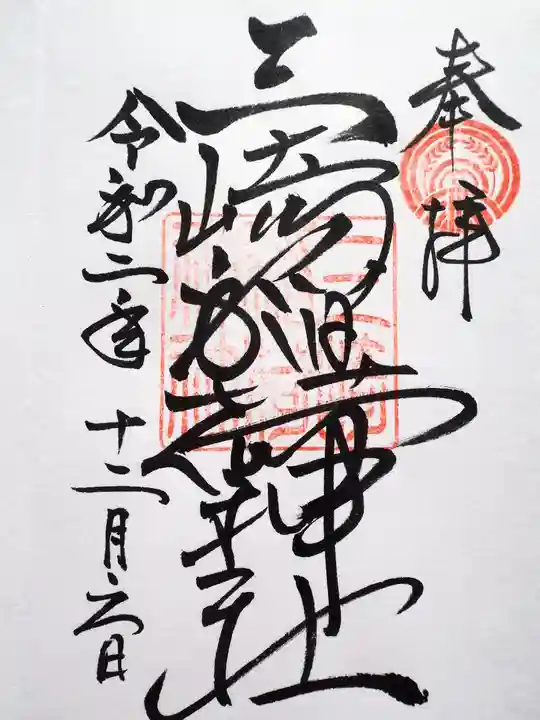 奉拝
三崎稲荷神社
令和二年 十二月六日